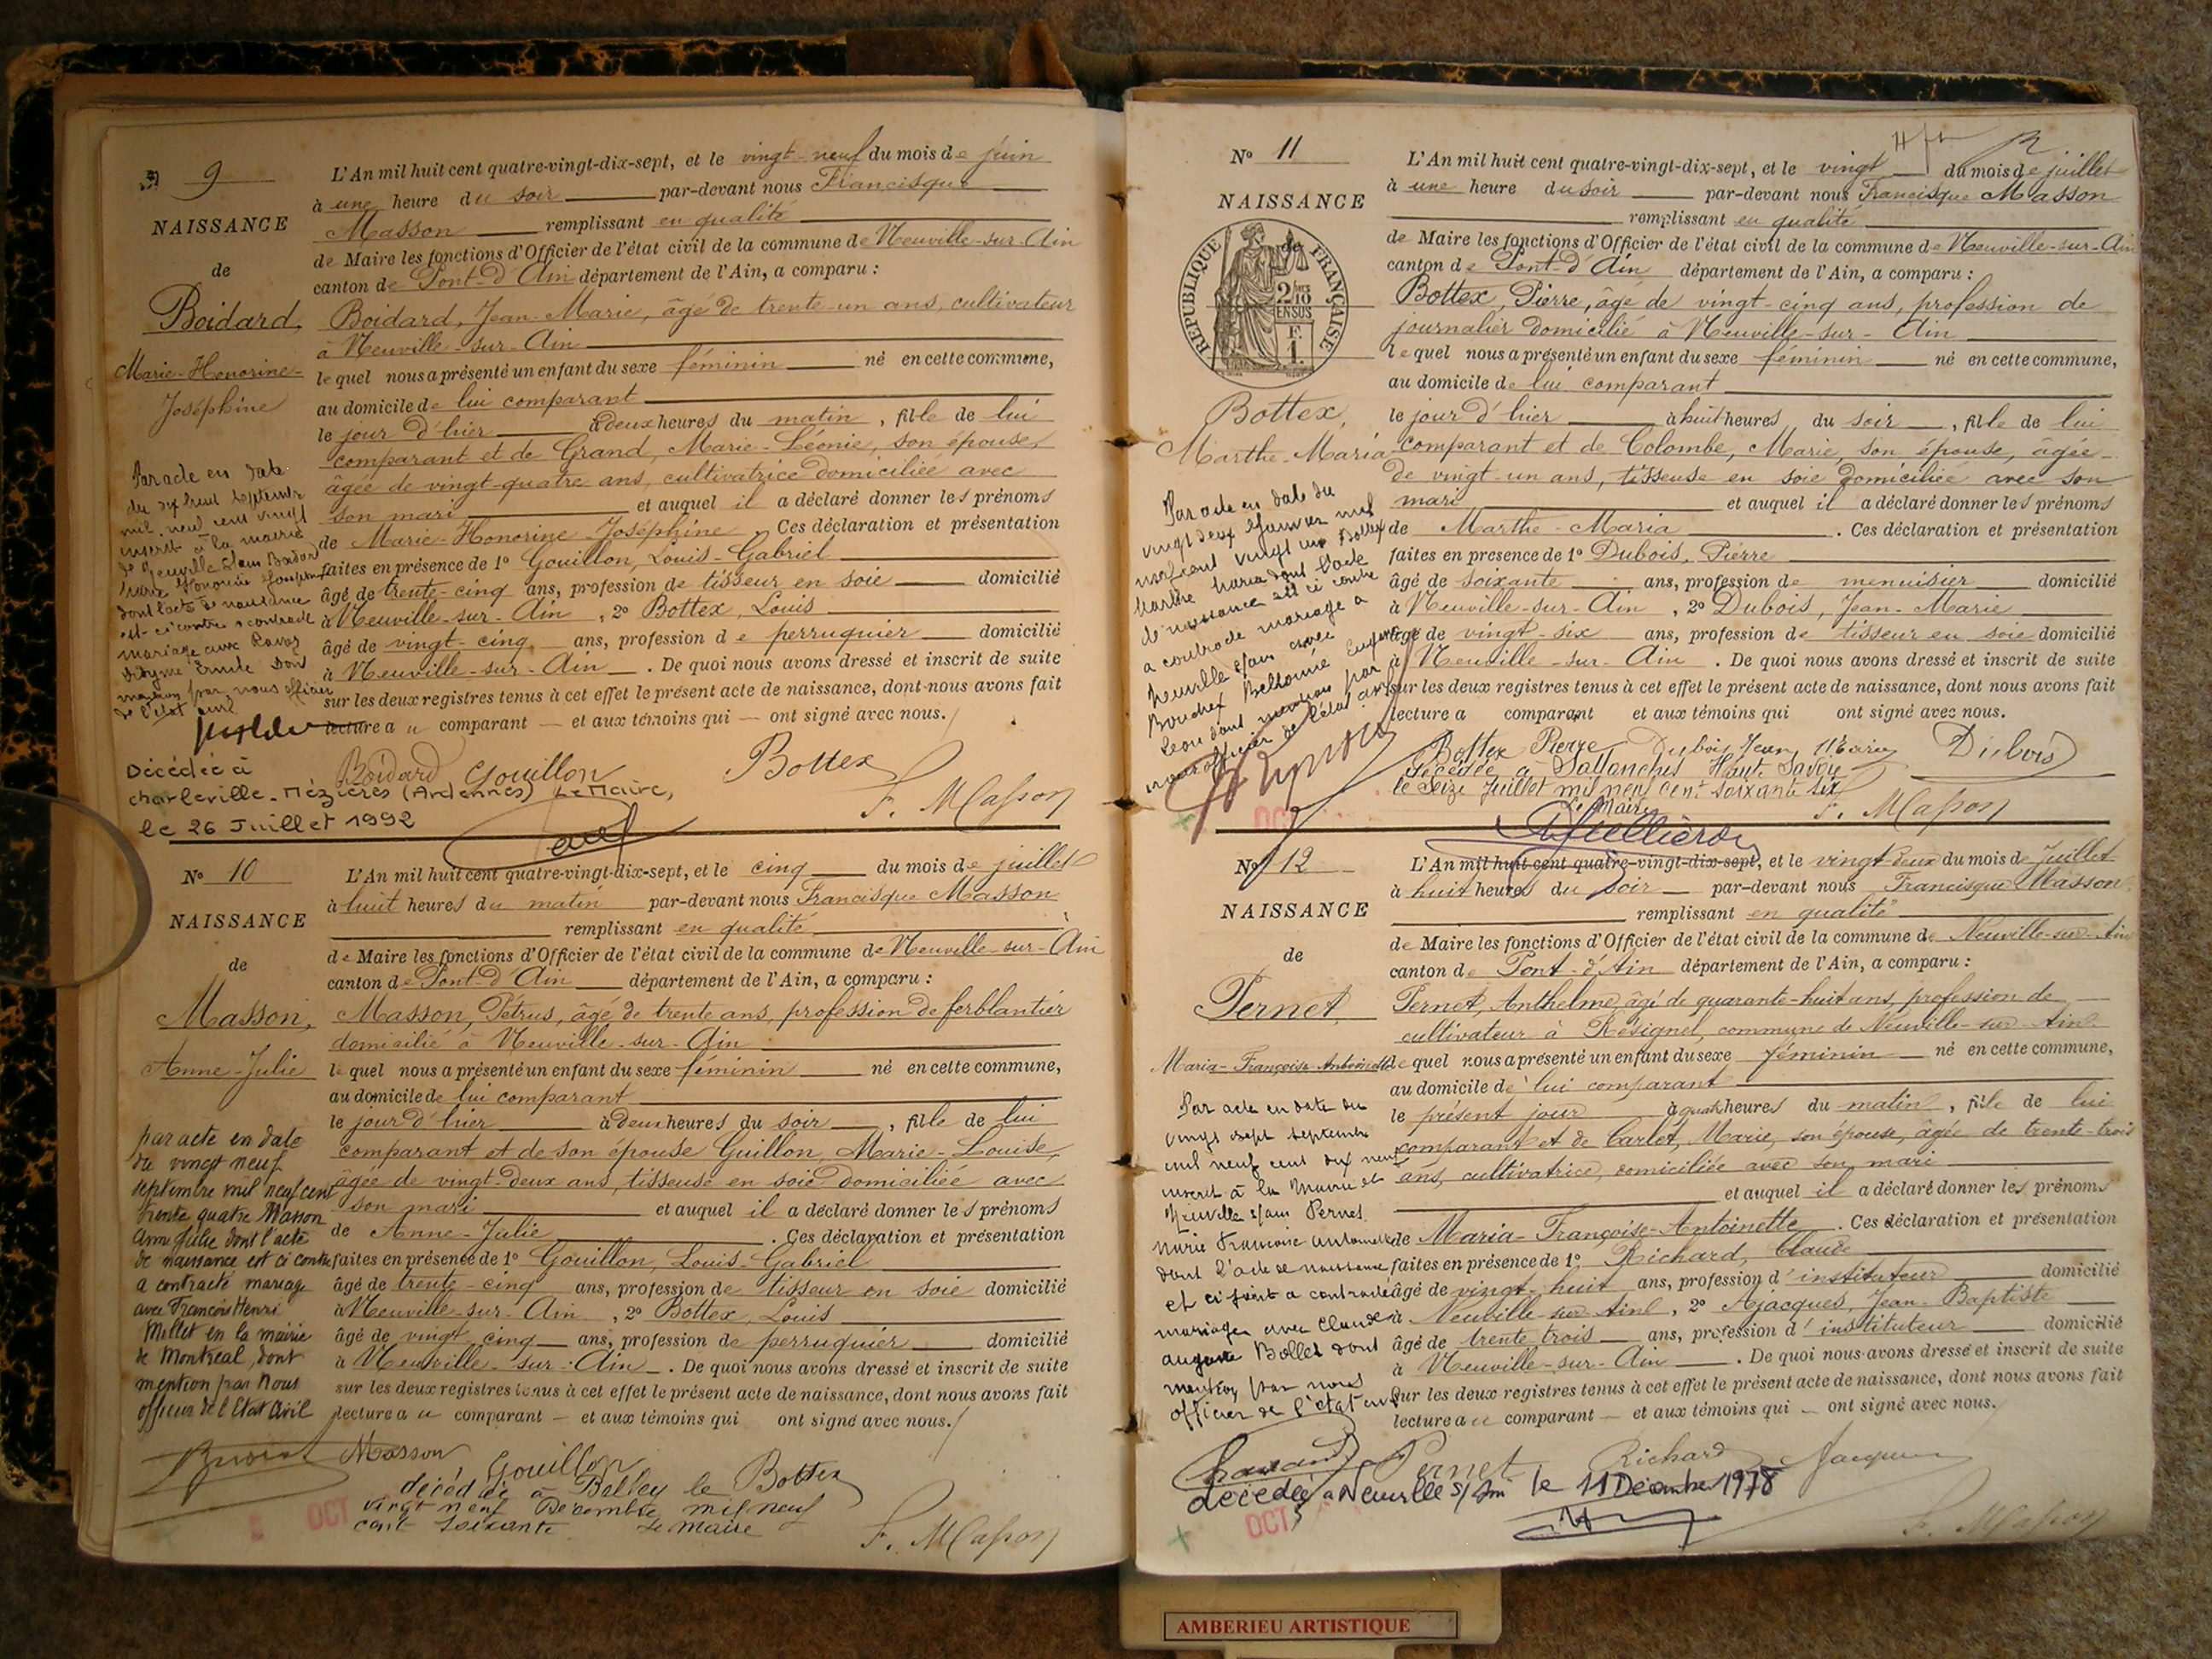 9
NAISSANCE
de
Boidard,
Marie-Honorine-
Joséphine
L'An mil huit cent quatre-vingt-dix-sept, et le vingt-neuf du mois de juin
à une heure du soir par-devant nous Francisque
Masson remplissant en qualité
de Maire les fonctions d'Officier de l'état civil de la commune de Neuville-sur-Ain
canton de Pont-d'Ain département de l'Ain, a comparu :
Boidard, Jean-Marie, âgé de trente-un ans, cultivateur
à Neuville-sur-Ain
lequel nous a présenté un enfant du sexe féminin né en cette commune,
au domicile de lui comparant
le jour d'hier à deux heures du matin, fille de lui
comparant et de Grand, Marie-Léonie, son épouse,
âgée de vingt-quatre ans, cultivatrice domiciliée avec
son mari et auquel il a déclaré donner les prénoms
de Marie-Honorine-Joséphine. Ces déclaration et présentation
faites en présence de 1° Gouillon, Louis-Gabriel
âgé de trente-cinq ans, profession de tisseur en soie domicilié
à Neuville-sur-Ain, 2° Bottex, Louis
âgé de vingt-cinq ans, profession de perruquier domicilié
à Neuville-sur-Ain. De quoi nous avons dressé et inscrit de suite
sur les deux registres tenus à cet effet le présent acte de naissance, dont nous avons fait
lecture au comparant et aux témoins qui ont signé avec nous.
Par acte en date
du dix huit septembre
mil neuf cent vingt
inscrit à la mairie
de Neuville s/ain Boidard
Marie Honorine Joséphine
dont l'acte de naissance
est ci contre a contracté
mariage avec Ravaz
Emile dont
mention par nous officier
de l'état civil
Boidard Gouillon Bottex
F. Masson
Décédée à
Charleville-Mézières (Ardennes) Le Maire,
le 26 Juillet 1992
N° 10
NAISSANCE
de
Masson,
Anne-Julie
L'An mil huit cent quatre-vingt-dix-sept, et le cinq du mois de juillet
à huit heures du matin par-devant nous Francisque Masson
remplissant en qualité
de Maire les fonctions d'Officier de l'état civil de la commune de Neuville-sur-Ain
canton de Pont-d'Ain département de l'Ain, a comparu :
Masson, Pétrus, âgé de trente ans, profession de ferblantier
domicilié à Neuville-sur-Ain
lequel nous a présenté un enfant du sexe féminin né en cette commune,
au domicile de lui comparant
le jour d'hier à deux heures du soir, fille de lui
comparant et de son épouse Guillon, Marie-Louise,
âgée de vingt-deux ans, tisseuse en soie domiciliée avec
son mari et auquel il a déclaré donner les prénoms
de Anne-Julie. Ces déclaration et présentation
faites en présence de 1° Gouillon, Louis-Gabriel
âgé de trente-cinq ans, profession de tisseur en soie domicilié
à Neuville-sur-Ain, 2° Bottex, Louis
âgé de vingt cinq ans, profession de perruquier domicilié
à Neuville-sur-Ain. De quoi nous avons dressé et inscrit de suite
sur les deux registres tenus à cet effet le présent acte de naissance, dont nous avons fait
lecture au comparant et aux témoins qui ont signé avec nous.
par acte en date
du vingt neuf
septembre mil neuf cent
trente quatre Masson
Anne Julie dont l'acte
de naissance est ci contre
a contracté mariage
avec François Henri
Millet en la mairie
de Montréal, dont
mention par Nous
officier de l'Etat Civil
Masson Gouillon Bottex
décédée à Belley le
vingt neuf Décembre mil neuf
cent soixante Le Maire
F. Masson
OCT
N° 11
NAISSANCE
de
REPUBLIQUE FRANÇAISE
Bottex,
Marthe-Maria
L'An mil huit cent quatre-vingt-dix-sept, et le vingt du mois de juillet
à une heure du soir par-devant nous Francisque Masson
remplissant en qualité
de Maire les fonctions d'Officier de l'état civil de la commune de Neuville-sur-Ain
canton de Pont-d'Ain département de l'Ain, a comparu :
Bottex, Pierre, âgé de vingt-cinq ans, profession de
journalier domicilié à Neuville-sur-Ain
lequel nous a présenté un enfant du sexe féminin né en cette commune,
au domicile de lui comparant
le jour d'hier à huit heures du soir, fille de lui
comparant et de Colombe, Marie, son épouse, âgée
de vingt-un ans, tisseuse en soie domiciliée avec son
mari et auquel il a déclaré donner les prénoms
de Marthe-Maria. Ces déclaration et présentation
faites en présence de 1° Dubois, Pierre
âgé de soixante ans, profession de menuisier domicilié
à Neuville-sur-Ain, 2° Dubois, Jean-Marie
âgé de vingt-six ans, profession de tisseur en soie domicilié
à Neuville-sur-Ain. De quoi nous avons dressé et inscrit de suite
sur les deux registres tenus à cet effet le présent acte de naissance, dont nous avons fait
lecture a comparant et aux témoins qui ont signé avec nous.
Par acte en date du
vingt deux Janvier mil
neuf cent vingt un Bottex
Marthe Maria dont l'acte
de naissance est ci contre
a contracté mariage à
Neuville s/ain avec
Bouchex Eugène
Léon dont mention par
nous officier de l'état civil
Bottex Pierre Dubois Jean Marie Dubois
décédée à Sallanches Haute Savoie
le seize Juillet mil neuf cent soixante six
Le Maire
F. Masson
OCT
N° 12
NAISSANCE
de
Pernet,
Maria-Françoise-Antoinette
L'An mil huit cent quatre-vingt-dix-sept, et le vingt deux du mois de Juillet
à huit heures du soir par-devant nous Francisque Masson
remplissant en qualité
de Maire les fonctions d'Officier de l'état civil de la commune de Neuville-sur-Ain
canton de Pont-d'Ain département de l'Ain, a comparu :
Pernet, Anthelme, âgé de quarante-huit ans, profession de
cultivateur à Résignel, commune de Neuville-sur-Ain
lequel nous a présenté un enfant du sexe féminin né en cette commune,
au domicile de lui comparant
le présent jour à quatre heures du matin, fille de lui
comparant et de Carlot, Marie, son épouse, âgée de trente-trois
ans, cultivatrice, domiciliée avec son mari
et auquel il a déclaré donner les prénoms
de Maria-Françoise-Antoinette. Ces déclaration et présentation
faites en présence de 1° Richard, Claude
âgé de vingt-huit ans, profession d'instituteur domicilié
à Neuville-sur-Ain, 2° Ajacques, Jean-Baptiste
âgé de trente trois ans, profession d'instituteur domicilié
à Neuville-sur-Ain. De quoi nous avons dressé et inscrit de suite
sur les deux registres tenus à cet effet le présent acte de naissance, dont nous avons fait
lecture au comparant et aux témoins qui ont signé avec nous.
Par acte en date du
vingt sept septembre
mil neuf cent dix neuf
inscrit à la Mairie de
Neuville s/ain Pernet
Marie Françoise Antoinette
dont l'acte de naissance
est ci joint a contracté
mariage avec Claude
auguste Bollet dont
mention par nous
officier de l'état civil
Pernet Richard Jacques
décédée à Neuville s/Ain le 11 Décembre 1978
F. Masson
OCT
AMBERIEU ARTISTIQUE